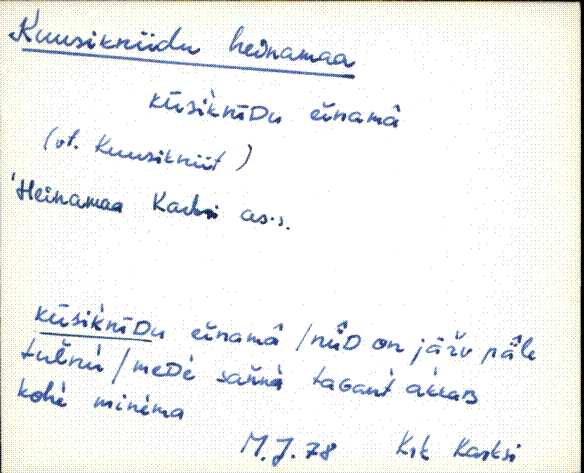 Kuusikniidu heinamaa
kūsìknīDu einamā̂
(vt. Kuusikniit)
'Heinamaa Karksi as-s.
kūsìknīDu einamā̂ /nǖ̂D on järv pǟ̂le
tulnù /meDè sannà tagant akkas
kohè minèma
M.J. 78 Krk Karksi